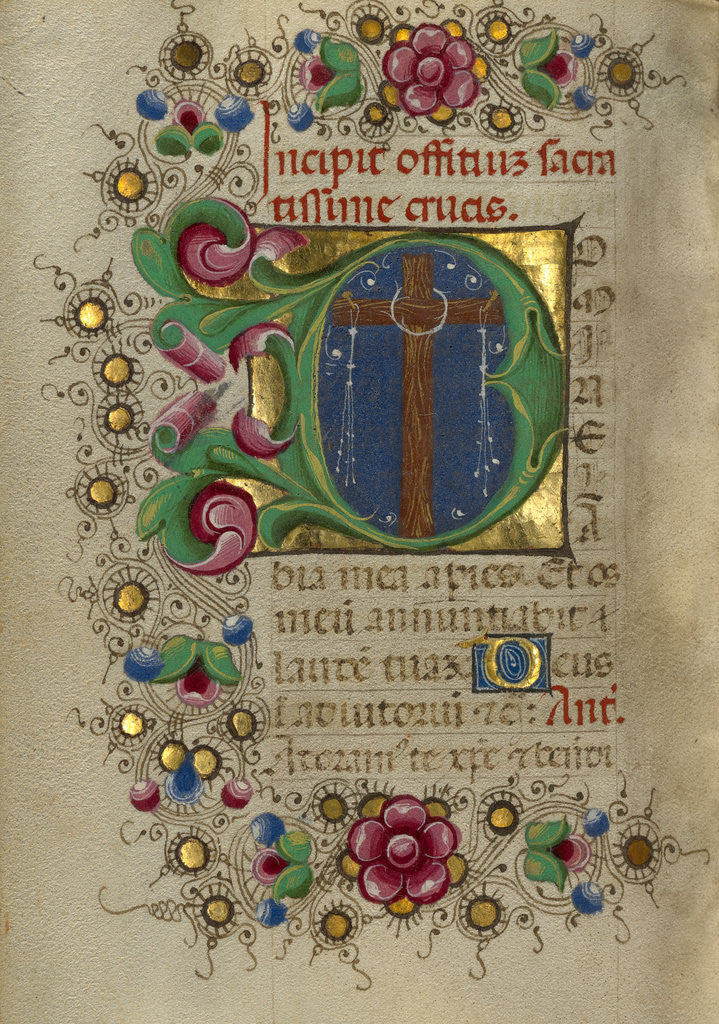 Incipit offitiuz sacra
tissime crucis.
D
O
M
I
N
E
L
A
bia mea apies. Et os
meū annuntiabit
laudē tuaz Deus
ī adiutoriū ⁊c̄: Ant̄.
Adoram' te xp̄e ⁊ bn̄di